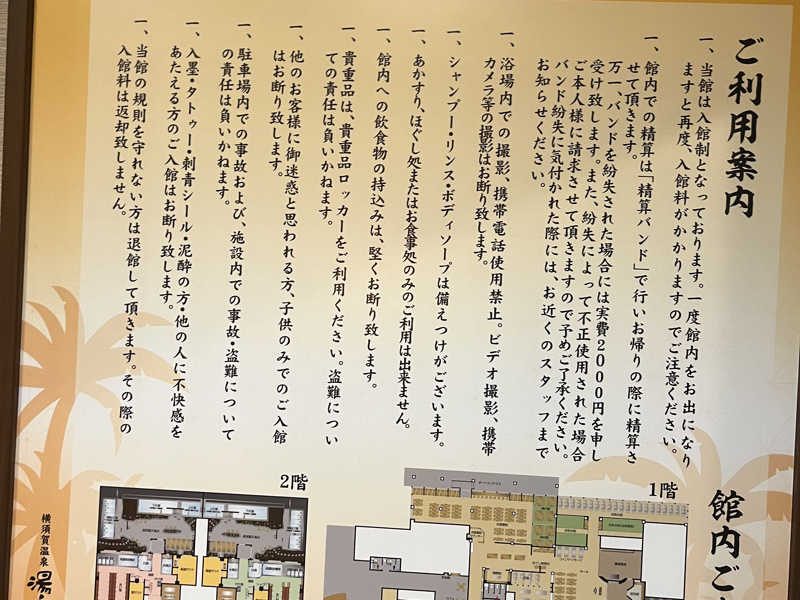 ご利用案内
一、当館は入館制となっております。一度館内をお出になり
ますと再度、入館料がかかりますのでご注意ください。
一、館内での精算は「精算バンド」で行いお帰りの際に精算さ
せて頂きます。
万一、バンドを紛失された場合には実費2000円を申し
受け致します。また、紛失によって不正使用された場合
ご本人様に請求させて頂きますので予めご了承ください。
バンド紛失に気付かれた際には、お近くのスタッフまで
お知らせください。
一、浴場内での撮影、携帯電話使用禁止。ビデオ撮影、携帯
カメラ等の撮影はお断り致します。
一、シャンプー・リンス・ボディソープは備えつけがございます。
一、あかすり、ほぐし処またはお食事処のみのご利用は出来ません。
一、館内への飲食物の持込みは、堅くお断り致します。
一、貴重品は、貴重品ロッカーをご利用ください。盗難につい
ての責任は負いかねます。
一、他のお客様に御迷惑と思われる方、子供のみでのご入館
はお断り致します。
一、駐車場内での事故および、施設内での事故・盗難について
の責任は負いかねます。
一、入墨・タトゥー・刺青シール・泥酔の方・他の人に不快感を
あたえる方のご入館はお断り致します。
一、当館の規則を守れない方は退館して頂きます。その際の
入館料は返却致しません。
館内ご
1階
2階
横須賀温泉
湯